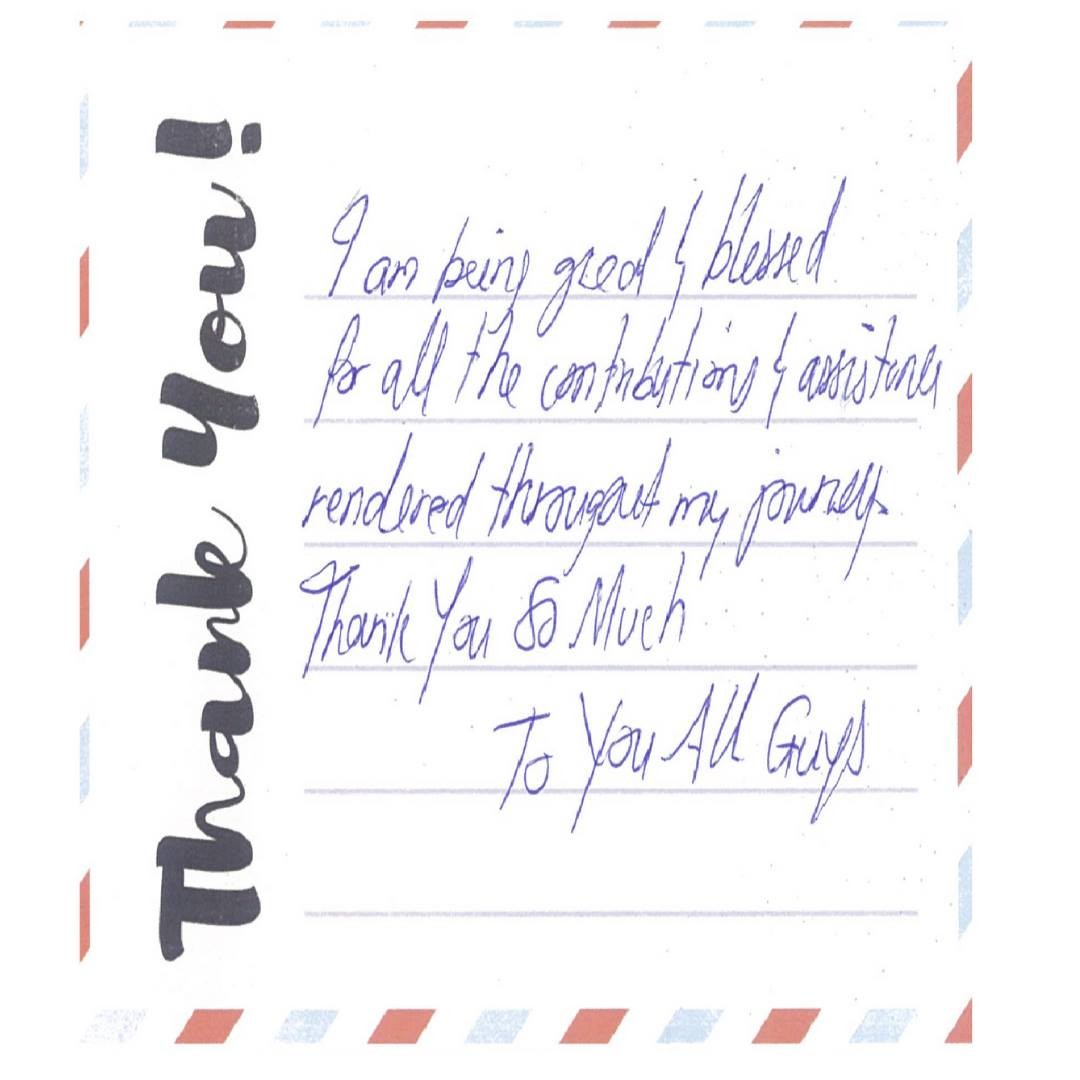 Thank You!
I am being good & blessed
for all the contributions & assistance
rendered througout my journey.
Thank You So Much
To You All Guys